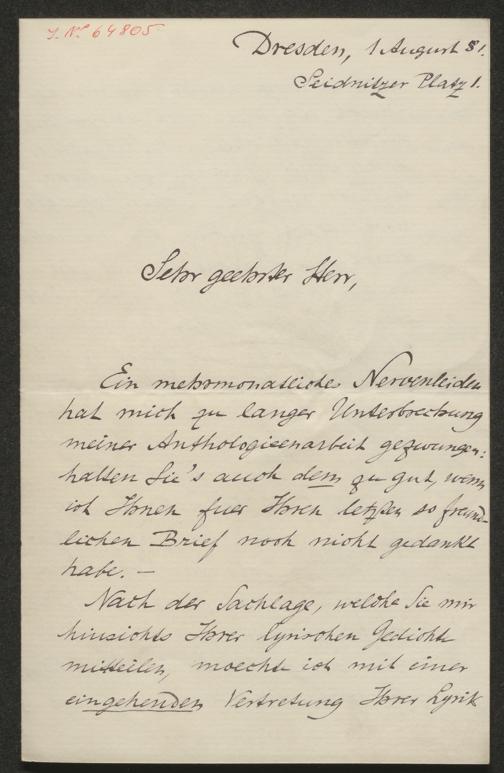 J. No 64805
Dresden, 1 August 81.
Seidnitzer Platz 1.
Sehr geehrter Herr,
Ein mehrmonatliches Nervenleiden
hat mich zu langer Unterbrechung
meiner Anthologieenarbeit gezwungen:
halten Sie's auch dem zu gut, wenn
ich Ihnen fuer Ihren letzten so freund-
lichen Brief noch nicht gedankt
habe. —
Nach der Sachlage, welche Sie mir
hinsichts Ihrer lyrischen Gedichte
mitteilen, moechte ich mit einer
eingehenden Vertretung Ihrer Lyrik